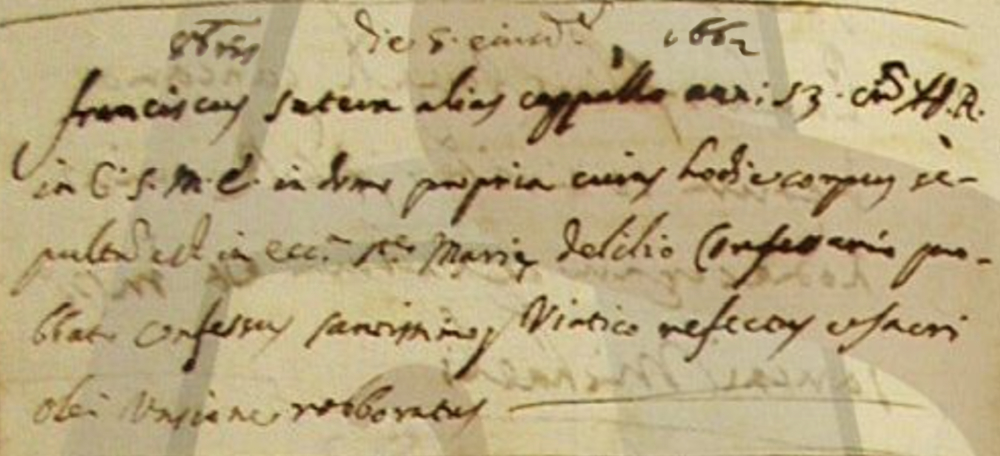 8bris die 5 eiusd. 1662
franciscus sutera alias cappello ann: 53. an. H. R.
in C. S. M. E. in domo propria cuius hodie corpus se-
pultu est in ecc. s.te Marię delilio Confessario pro-
bbato confessus santissimoq Viatico refectus e sacri
olei unsione robboratus